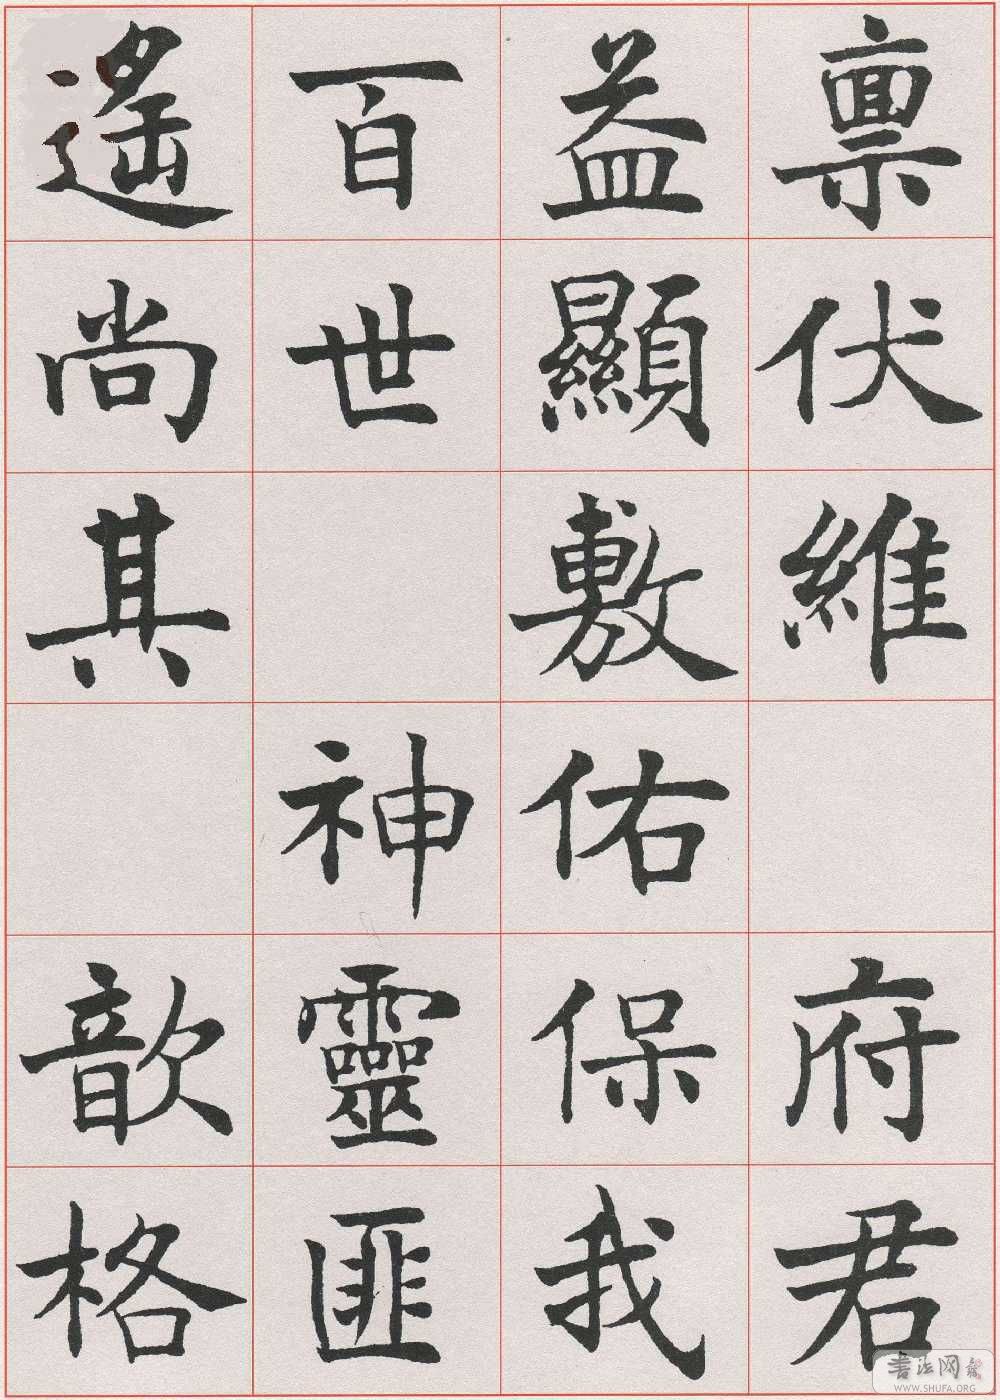 禀伏維府君
益顯敷佑保我
百世神靈匪
遙尚其歆格
書法网
WWW.SHUFA.ORG